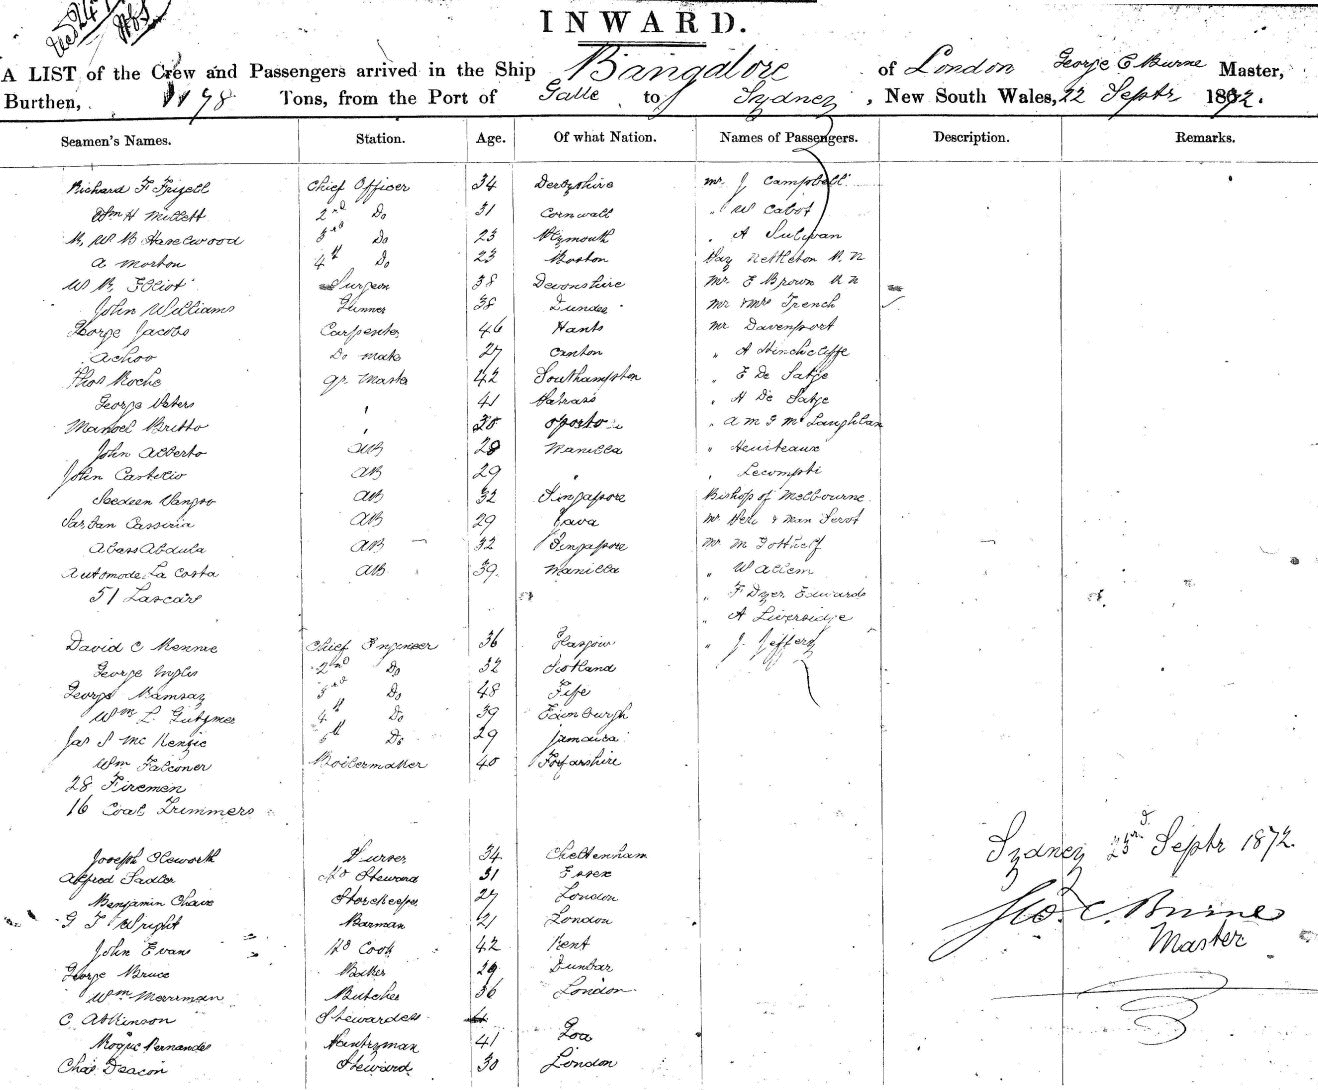 INWARD.
A LIST of the Crew and Passengers arrived in the Ship Bangalore of London George E Burne Master,
Burthen, Tons, from the Port of Galle to Sydney, New South Wales, 22 Septr 1872.
Seamen's Names. Station. Age. Of what Nation. Names of Passengers. Description. Remarks.
Richard F Frizell Chief Officer 34 Derbyshire Mr J Campbell
Wm H Millett 2nd Do 31 Cornwall " W Cabot
R. W B Haselwood 3rd Do 23 Plymouth " A Sulivan
A Morton 4th Do 23 Boston Nettleton R. N
W R. Elliot Surgeon 38 Devonshire Mr E Brown R N
John Williams Gunner 38 Dundee Mr & Mrs French
George Jacobs Carpenter 46 Hants Mr Davenport
Achoo Do Mate 27 Canton " A Hinchcliffe
Thos Roche Qr Master 42 Southampton " E De Satge
George Waters " 41 " H De Satge
Manoel Britto " 30 Oporto " A M G McLaughlan
John Alberto AB 28 Manilla " Heuiteaux
John Castelio AB 29 " " Lecompti
Seedeen AB 32 Singapore Bishop of Melbourne
Sarfan Cassiria AB 29 Java Mr & Man Servt
Abass Abdula AB 32 Singapore Mr M Gotthelf
Automode La Costa AB 39 Manilla " W Allem
51 Lascars " F Dyer Edwards
" A Liversidge
David C Rennie Chief Engineer 36 Glasgow " J. Jeffery
George Inglis 2nd Do 32 Scotland
George Ramsay 3rd Do 48 Fife
Wm L. Gutzmer 4th Do 39 Edinburgh
Jas S McKenzie 5th Do 29 Jamaica
Wm Falconer Boilermaker 40 Forfarshire
28 Firemen
16 Coal Trimmers
Sydney 23rd Septr 1872.
Joseph Purser 34 Cheltenham
Alfred Sadler Hd Steward 31 Essex
Benjamin Chave Storekeeper 27 London
G F Wright Barman 21 London
Geo. C. Burne
Master
John Evans Hd Cook 42 Kent
George Bruce Baker 29 Dunbar
Wm Merriman Butcher 36 London
C. Atkinson Stewardess
Roque Fernandes Pantryman 41 Goa
Chas Deacon Steward 30 London